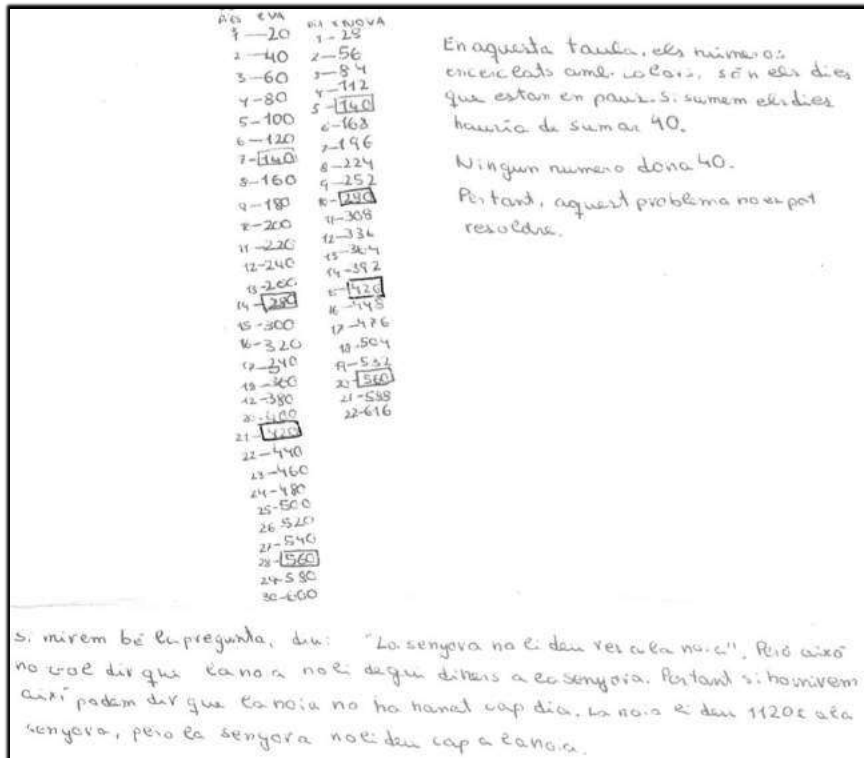 Dies EVA
1—20
2—40
3—60
4—80
5—100
6—120
7—140
8—160
9—180
10—200
11—220
12—240
13—260
14—280
15—300
16—320
17—340
18—360
12—380
20—400
21—420
22—440
23—460
24—480
25—500
26 520
27—540
28—560
29—580
30—600
Dia NOVA
1—28
2—56
3—84
4—112
5—140
6—168
7—196
8—224
9—252
10—280
11—308
12—336
13—364
14—392
15—420
16—448
17—476
18—504
19—532
20—560
21—588
22—616
En aquesta taula, els números
encerclats amb colors, són els dies
que estan en paus. Si sumem els dies
hauria de sumar 40.
Ningun numero dona 40.
Per tant, aquest problema no es pot
resoldre.
Si mirem bé la pregunta, diu: "La senyora no li deu res a la noia". Però això
no vol dir que la noia no li degui diners a la senyora. Per tant si ho mirem
així podem dir que la noia no ha anat cap dia. La noia li deu 1120€ a la
senyora, pero la senyora no li deu cap a la noia.